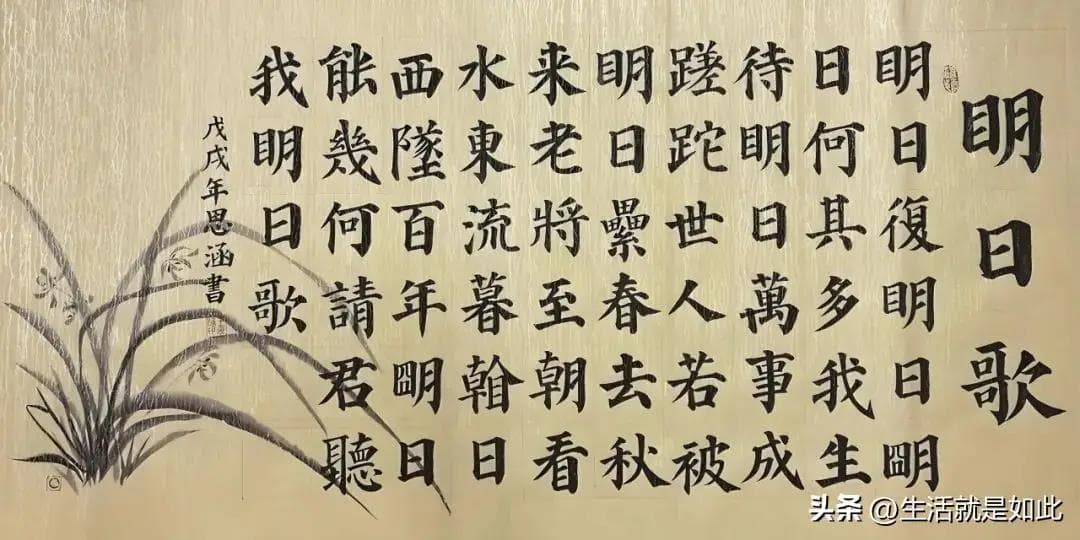 明日歌
明日復明日朙
日何其多我生
待明日萬事成
蹉跎世人若被
明日纍春去秋
来老將至朝看
水東流暮看日
西墜百年朙日
能幾何請君聽
我明日歌
戊戌年思涵書
头条 @生活就是如此